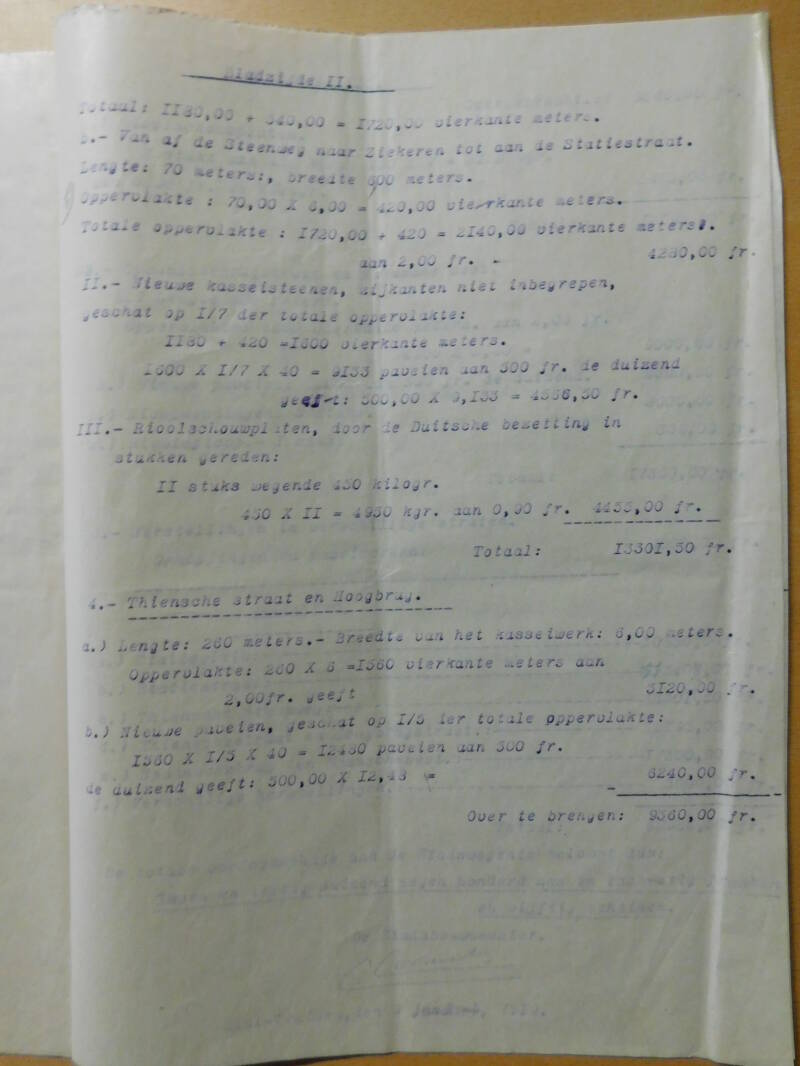 Bladzijde II.
Totaal: II80,00 + 540,00 = I720,00 vierkante meters.
b.- Van af de Steenweg naar Ziekeren tot aan de Statiestraat.
Lengte: 70 meters:, breedte 600 meters.
Oppervlakte : 70,00 X 6,00 = 420,00 vierkante meters.
Totale oppervlakte : I720,00 + 420 = 2I40,00 vierkante meters.
aan 2,00 fr. - 4280,00 fr.
II.- Nieuwe kasseisteenen, zijkanten niet inbegrepen,
geschat op I/7 der totale oppervlakte:
II80 + 420 =I600 vierkante meters.
I600 X I/7 X 40 = 9I33 paveien aan 500 fr. de duizend
geeft: 500,00 X 9,I33 = 4566,50 fr.
III.- Rioolschouwplaten, door de Duitsche bezetting in
stukken gereden:
II stuks wegende 450 kilogr.
450 X II = 4950 kgr. aan 0,90 fr. 4455,00 fr.
Totaal: I330I,50 fr.
4.- Thiensche straat en Hoogbrug.
a.) Lengte: 260 meters.- Breedte van het kasseiwerk: 6,00 meters.
Oppervlakte: 260 X 6 =I560 vierkante meters aan
2,00fr. geeft 3I20,00 fr.
b.) Nieuwe paveien, geschat op I/5 der totale oppervlakte:
I560 X I/5 X 40 = I2480 paveien aan 500 fr.
de duizend geeft: 500,00 X I2,48 = 6240,00 fr.
Over te brengen: 9360,00 fr.